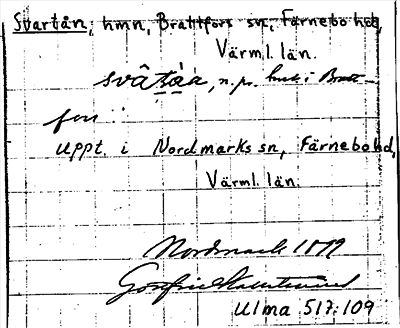 Svartån, hmn, Brattfors sn, Färnebo hd,
Värml. län.
n. pr. hmn i Bratt-
fors
uppt. i Nordmarks sn, Färnebo hd,
Värml. län.
Nordmark 1879
Ulma 517:109